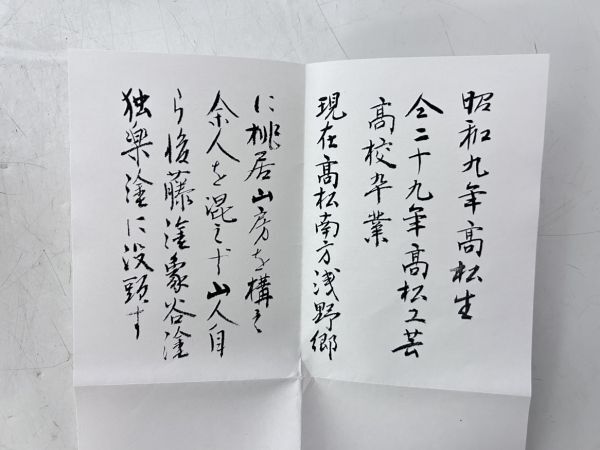 昭和九年高松生
仝二十九年高松工芸
高校卒業
現在高松南方浅野郷
に桃居山房を構え
余人を混えず山人自
ら後藤塗象谷塗
独楽塗に没頭す